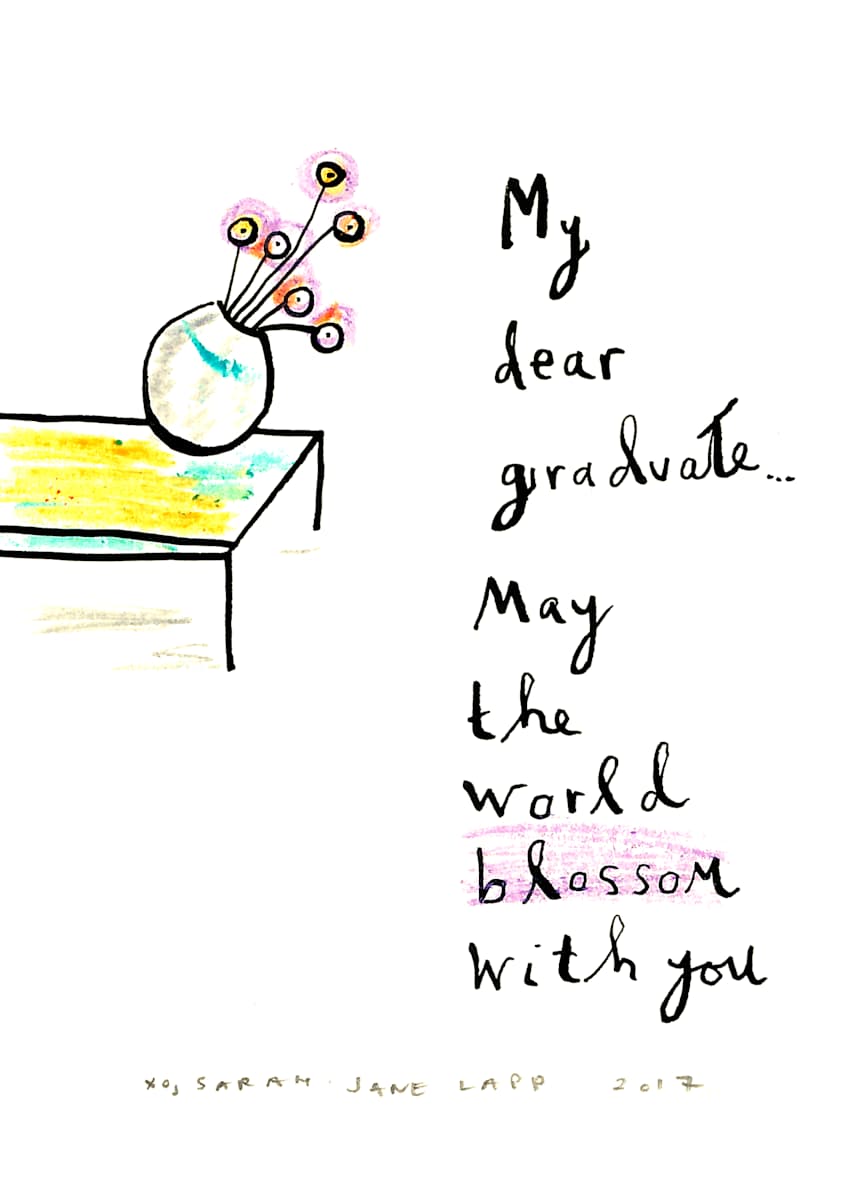 My
dear
graduate...
May
the
world
blossom
with you
xo, SARAH JANE LAPP 2017